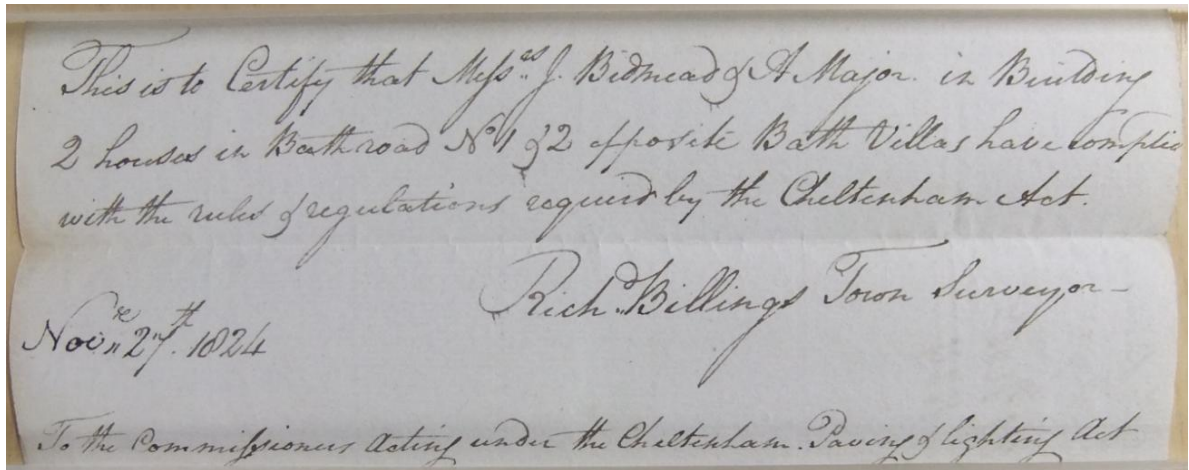 This is to Certify that Messrs J. Bidmead & A Major. in Building
2 houses in Bath road No 1 & 2 opposite Bath Villas have complied
with the rules & regulations requierd by the Cheltenham Act.
Richd. Billings Town Surveyor
Novr 27th. 1824
To the Commissioners Acting under the Cheltenham. Paving & lighting Act